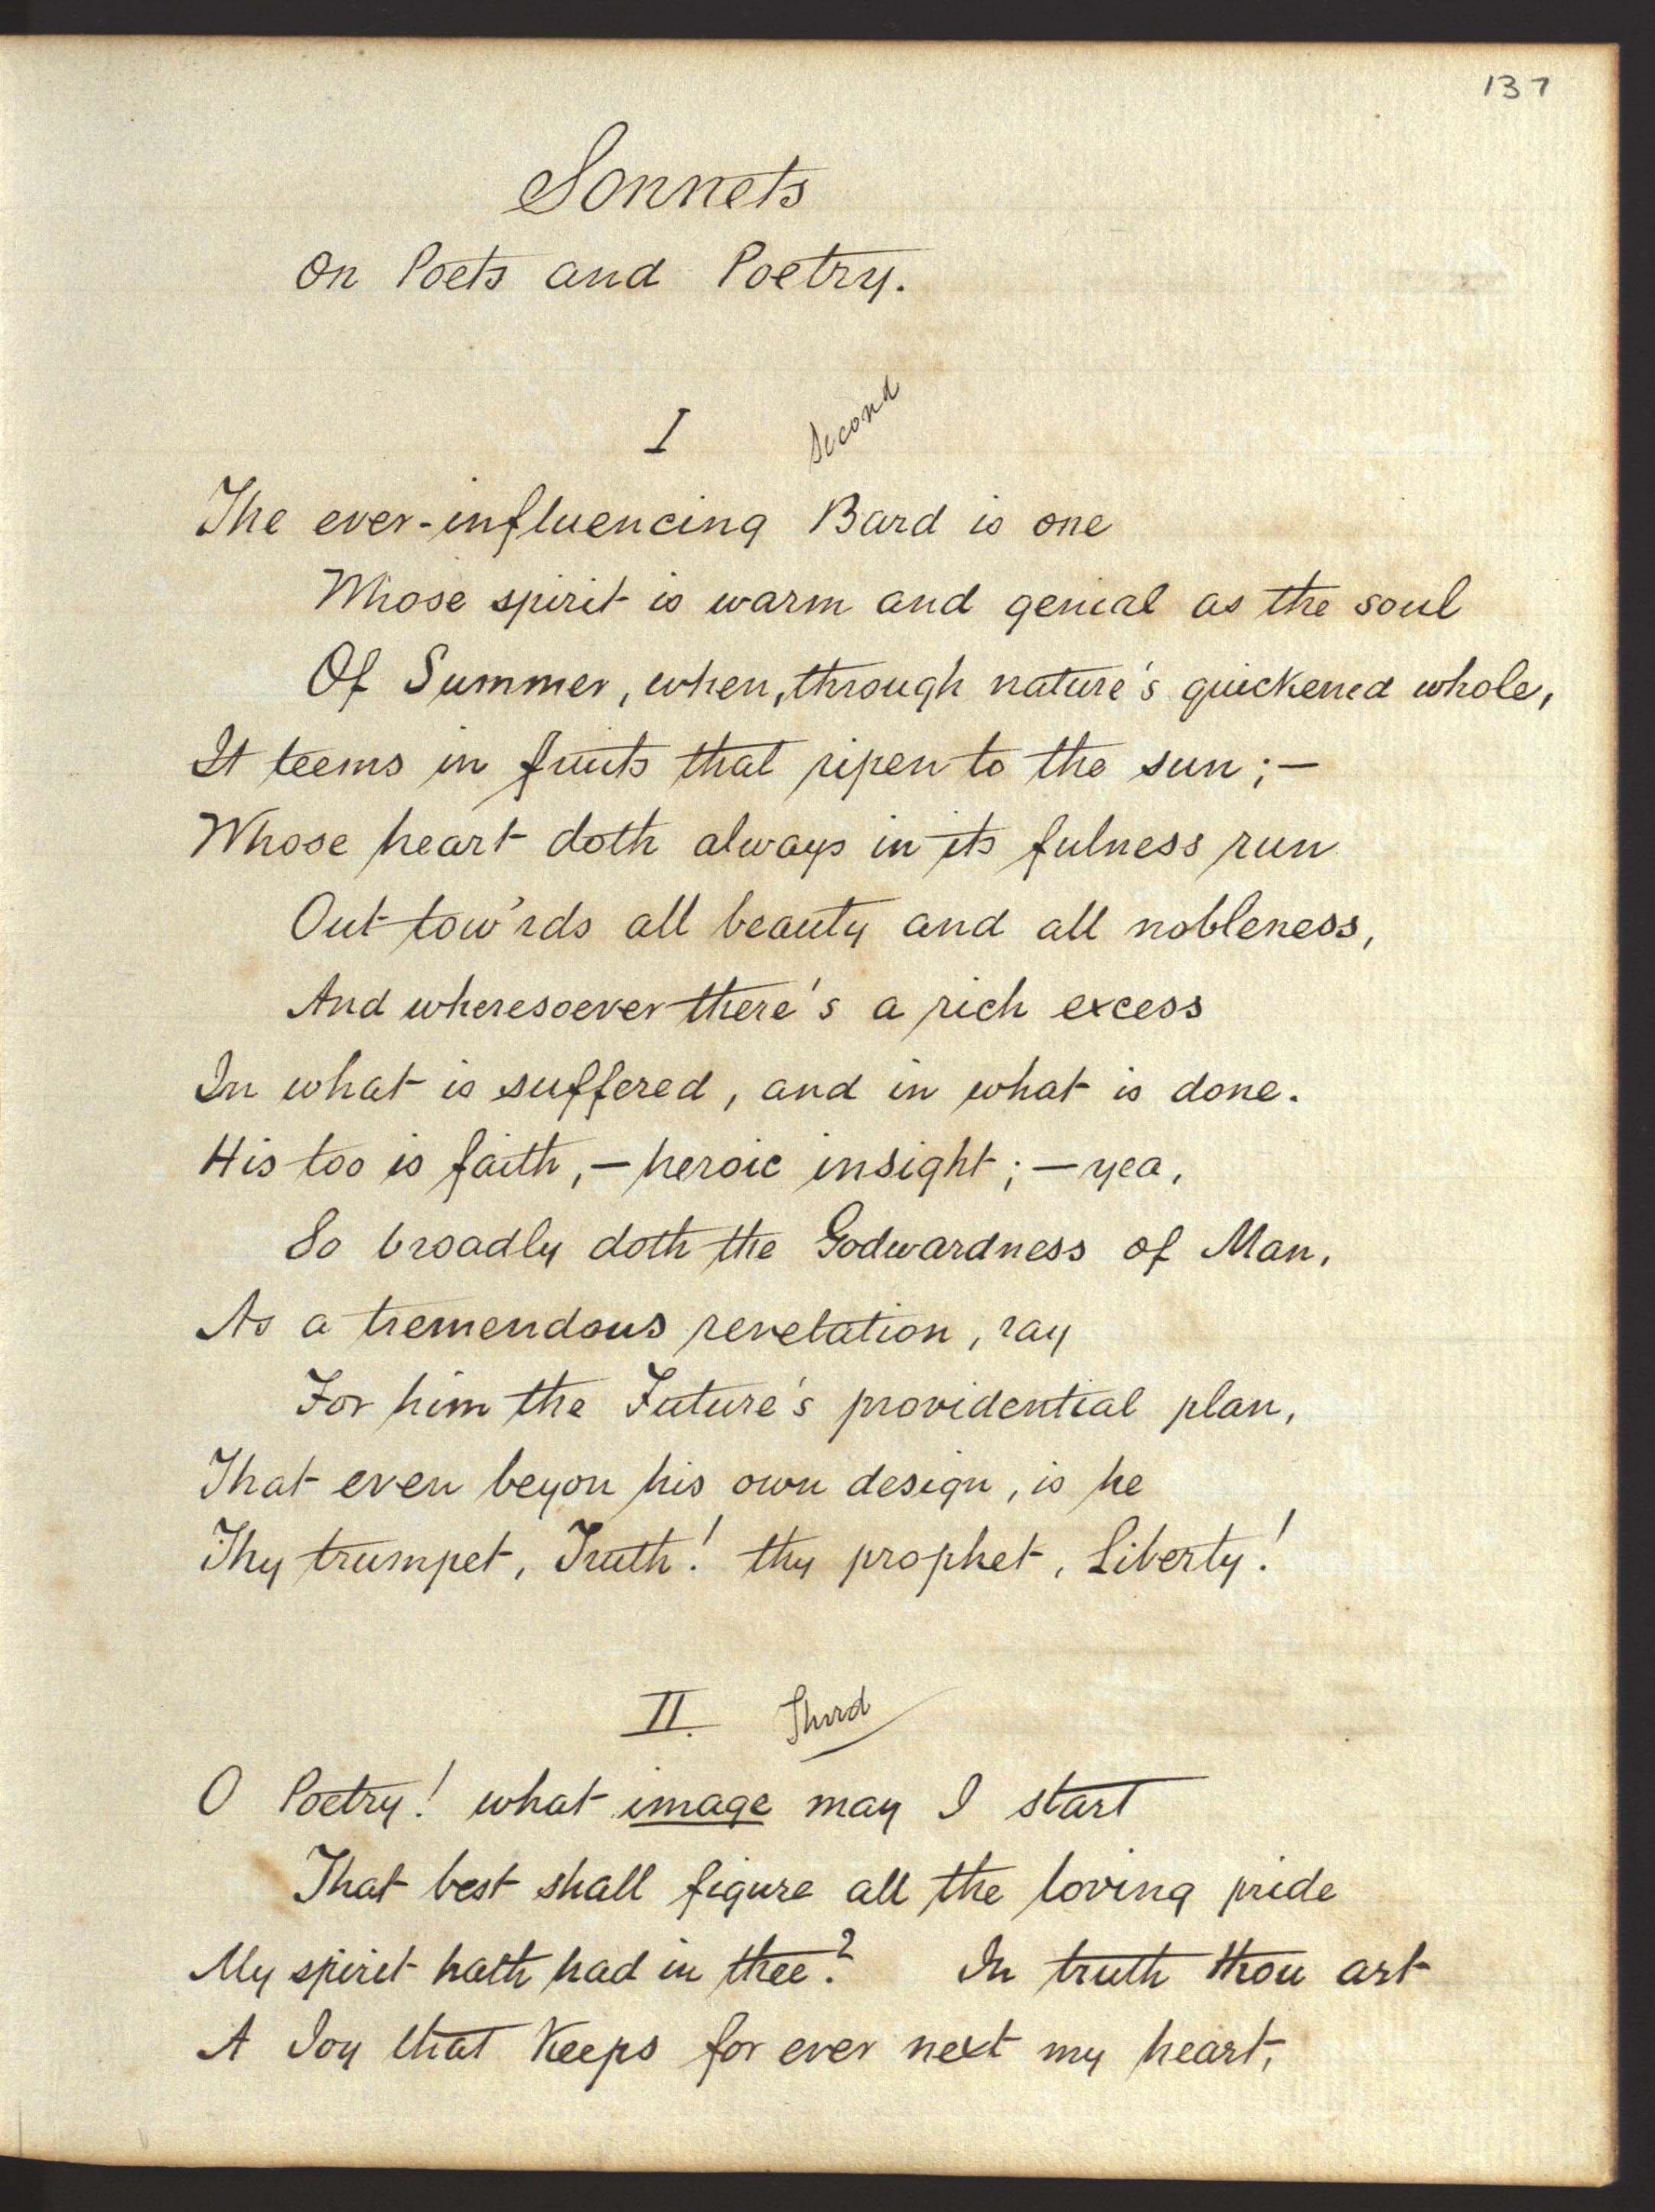 137
Sonnets
On Poets and Poetry.
I Second
The ever-influencing Bard is one
Whose spirit is warm and genial as the soul
Of Summer, when, through nature's quickened whole,
It teems in fruits that ripen to the sun;—
Whose heart doth always in its fulness run
Out tow'rds all beauty and all nobleness,
And wheresoever there's a rich excess
In what is suffered, and in what is done.
His too is faith,—heroic insight;—yea,
So broadly doth the Godwardness of Man,
As a tremendous revelation, ray
For him the Future's providential plan,
That even beyon his own design, is he
Thy trumpet, Truth! thy prophet, Liberty!
II. Third
O Poetry! what image may I start
That best shall figure all the loving pride
My spirit hath had in thee? In truth thou art
A Joy that Keeps for ever next my heart,